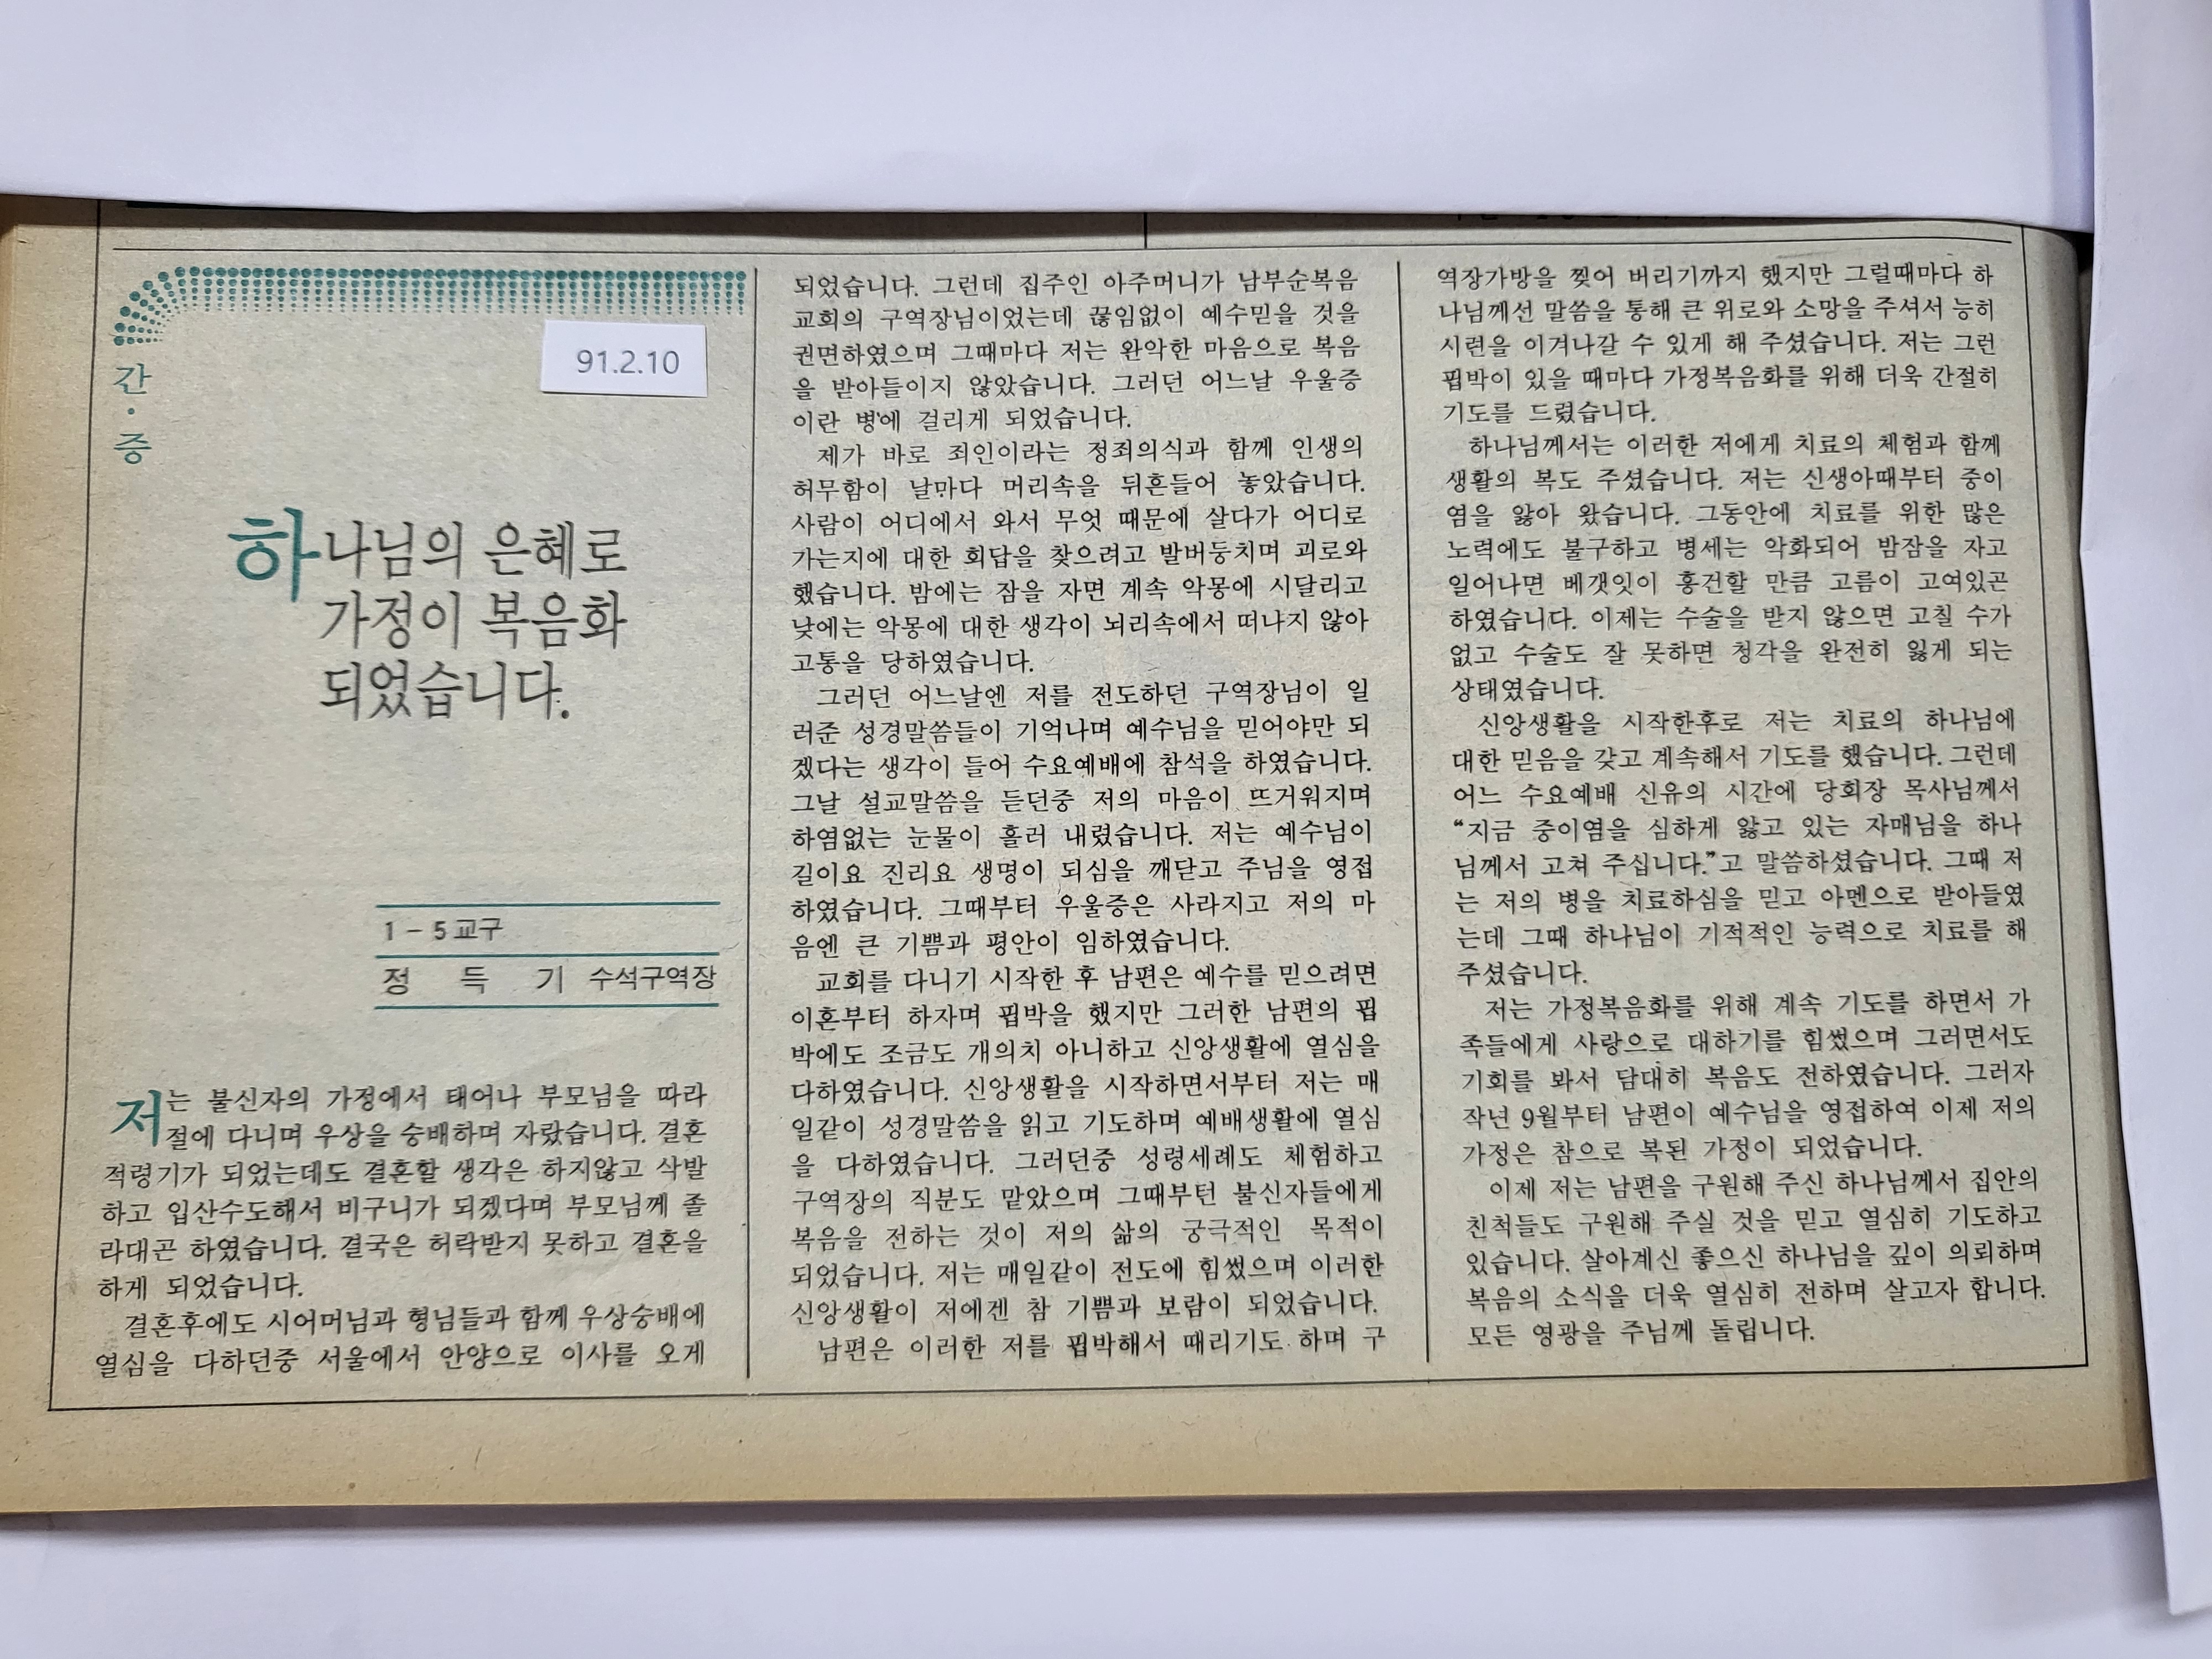 간·증
91.2.10
하나님의 은혜로
가정이 복음화
되었습니다.
1-5교구
정 득 기 수석구역장
저는 불신자의 가정에서 태어나 부모님을 따라
절에 다니며 우상을 숭배하며 자랐습니다. 결혼
적령기가 되었는데도 결혼할 생각은 하지않고 삭발
하고 입산수도해서 비구니가 되겠다며 부모님께 졸
라대곤 하였습니다. 결국은 허락받지 못하고 결혼을
하게 되었습니다.
결혼후에도 시어머님과 형님들과 함께 우상숭배에
열심을 다하던중 서울에서 안양으로 이사를 오게
되었습니다. 그런데 집주인 아주머니가 남부순복음
교회의 구역장님이었는데 끊임없이 예수믿을 것을
권면하였으며 그때마다 저는 완악한 마음으로 복음
을 받아들이지 않았습니다. 그러던 어느날 우울증
이란 병에 걸리게 되었습니다.
제가 바로 죄인이라는 정죄의식과 함께 인생의
허무함이 날마다 머리속을 뒤흔들어 놓았습니다.
사람이 어디에서 와서 무엇 때문에 살다가 어디로
가는지에 대한 회답을 찾으려고 발버둥치며 괴로와
했습니다. 밤에는 잠을 자면 계속 악몽에 시달리고
낮에는 악몽에 대한 생각이 뇌리속에서 떠나지 않아
고통을 당하였습니다.
그러던 어느날엔 저를 전도하던 구역장님이 일
러준 성경말씀들이 기억나며 예수님을 믿어야만 되
겠다는 생각이 들어 수요예배에 참석을 하였습니다.
그날 설교말씀을 듣던중 저의 마음이 뜨거워지며
하염없는 눈물이 흘러 내렸습니다. 저는 예수님이
길이요 진리요 생명이 되심을 깨닫고 주님을 영접
하였습니다. 그때부터 우울증은 사라지고 저의 마
음엔 큰 기쁨과 평안이 임하였습니다.
교회를 다니기 시작한 후 남편은 예수를 믿으려면
이혼부터 하자며 핍박을 했지만 그러한 남편의 핍
박에도 조금도 개의치 아니하고 신앙생활에 열심을
다하였습니다. 신앙생활을 시작하면서부터 저는 매
일같이 성경말씀을 읽고 기도하며 예배생활에 열심
을 다하였습니다. 그러던중 성령세례도 체험하고
구역장의 직분도 맡았으며 그때부턴 불신자들에게
복음을 전하는 것이 저의 삶의 궁극적인 목적이
되었습니다. 저는 매일같이 전도에 힘썼으며 이러한
신앙생활이 저에겐 참 기쁨과 보람이 되었습니다.
남편은 이러한 저를 핍박해서 때리기도 하며 구
역장가방을 찢어 버리기까지 했지만 그럴때마다 하
나님께선 말씀을 통해 큰 위로와 소망을 주셔서 능히
시련을 이겨나갈 수 있게 해 주셨습니다. 저는 그런
핍박이 있을 때마다 가정복음화를 위해 더욱 간절히
기도를 드렸습니다.
하나님께서는 이러한 저에게 치료의 체험과 함께
생활의 복도 주셨습니다. 저는 신생아때부터 중이
염을 앓아 왔습니다. 그동안에 치료를 위한 많은
노력에도 불구하고 병세는 악화되어 밤잠을 자고
일어나면 베갯잇이 흥건할 만큼 고름이 고여있곤
하였습니다. 이제는 수술을 받지 않으면 고칠 수가
없고 수술도 잘 못하면 청각을 완전히 잃게 되는
상태였습니다.
신앙생활을 시작한후로 저는 치료의 하나님에
대한 믿음을 갖고 계속해서 기도를 했습니다. 그런데
어느 수요예배 신유의 시간에 당회장 목사님께서
“지금 중이염을 심하게 앓고 있는 자매님을 하나
님께서 고쳐 주십니다.”고 말씀하셨습니다. 그때 저
는 저의 병을 치료하심을 믿고 아멘으로 받아들였
는데 그때 하나님이 기적적인 능력으로 치료를 해
주셨습니다.
저는 가정복음화를 위해 계속 기도를 하면서 가
족들에게 사랑으로 대하기를 힘썼으며 그러면서도
기회를 봐서 담대히 복음도 전하였습니다. 그러자
작년 9월부터 남편이 예수님을 영접하여 이제 저의
가정은 참으로 복된 가정이 되었습니다.
이제 저는 남편을 구원해 주신 하나님께서 집안의
친척들도 구원해 주실 것을 믿고 열심히 기도하고
있습니다. 살아계신 좋으신 하나님을 깊이 의뢰하며
복음의 소식을 더욱 열심히 전하며 살고자 합니다.
모든 영광을 주님께 돌립니다.